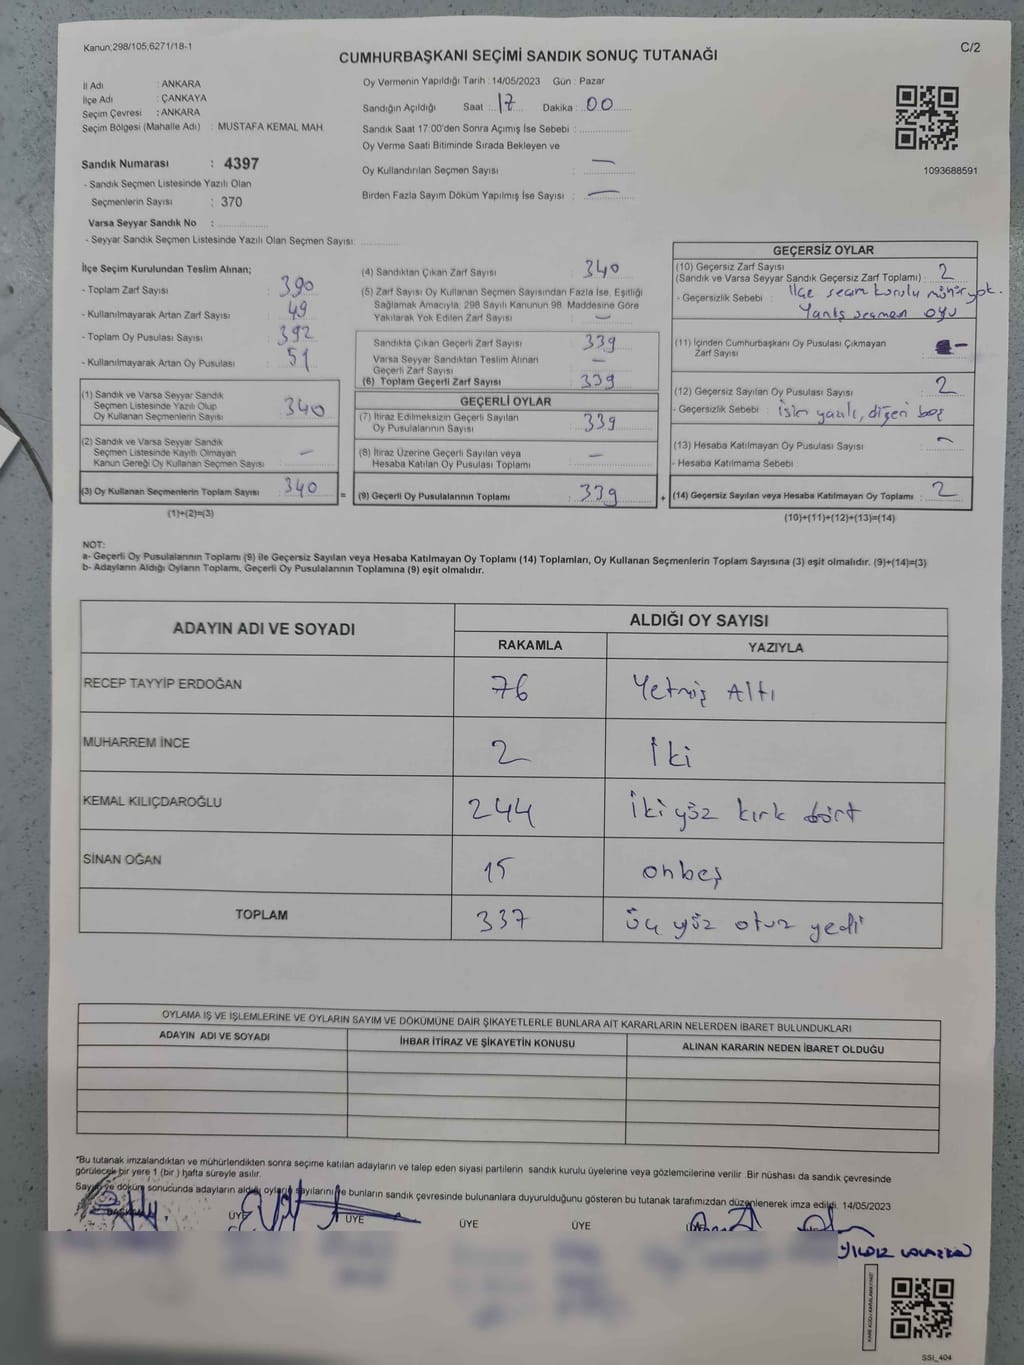 Kanun;298/105;6271/18-1
C/2
CUMHURBAŞKANI SEÇİMİ SANDIK SONUÇ TUTANAĞI
İl Adı : ANKARA
İlçe Adı : ÇANKAYA
Seçim Çevresi : ANKARA
Seçim Bölgesi (Mahalle Adı) : MUSTAFA KEMAL MAH.
Sandık Numarası : 4397
- Sandık Seçmen Listesinde Yazılı Olan
Seçmenlerin Sayısı : 370
Varsa Seyyar Sandık No :
- Seyyar Sandık Seçmen Listesinde Yazılı Olan Seçmen Sayısı:
Oy Vermenin Yapıldığı Tarih : 14/05/2023 Gün : Pazar
Sandığın Açıldığı Saat : 17 Dakika : 00
Sandık Saat 17:00'den Sonra Açımış İse Sebebi :
Oy Verme Saati Bitiminde Sırada Bekleyen ve
Oy Kullandırılan Seçmen Sayısı : —
Birden Fazla Sayım Döküm Yapılmış İse Sayısı : —
1093688591
İlçe Seçim Kurulundan Teslim Alınan;
- Toplam Zarf Sayısı : 390
- Kullanılmayarak Artan Zarf Sayısı : 49
- Toplam Oy Pusulası Sayısı : 392
- Kullanılmayarak Artan Oy Pusulası : 51
(1) Sandık ve Varsa Seyyar Sandık
Seçmen Listesinde Yazılı Olup
Oy Kullanan Seçmenlerin Sayısı : 340
(2) Sandık ve Varsa Seyyar Sandık
Seçmen Listesinde Kayıtlı Olmayan
Kanun Gereği Oy Kullanan Seçmen Sayısı : —
(3) Oy Kullanan Seçmenlerin Toplam Sayısı : 340 =
(1)+(2)=(3)
(4) Sandıktan Çıkan Zarf Sayısı : 340
(5) Zarf Sayısı Oy Kullanan Seçmen Sayısından Fazla İse, Eşitliği
Sağlamak Amacıyla; 298 Sayılı Kanunun 98. Maddesine Göre
Yakılarak Yok Edilen Zarf Sayısı : —
Sandıkta Çıkan Geçerli Zarf Sayısı : 339
Varsa Seyyar Sandıktan Teslim Alınan
Geçerli Zarf Sayısı : —
(6) Toplam Geçerli Zarf Sayısı : 339
GEÇERLİ OYLAR
(7) İtiraz Edilmeksizin Geçerli Sayılan
Oy Pusulalarının Sayısı : 339
(8) İtiraz Üzerine Geçerli Sayılan veya
Hesaba Katılan Oy Pusulası Toplamı : —
(9) Geçerli Oy Pusulalarının Toplamı : 339 +
GEÇERSİZ OYLAR
(10) Geçersiz Zarf Sayısı
(Sandık ve Varsa Seyyar Sandık Geçersiz Zarf Toplamı) : 2
- Geçersizlik Sebebi : İlçe seçim kurulu mühür yok.
Yanlış seçmen oyu
(11) İçinden Cumhurbaşkanı Oy Pusulası Çıkmayan
Zarf Sayısı : —
(12) Geçersiz Sayılan Oy Pusulası Sayısı : 2
- Geçersizlik Sebebi : isim yazılı, diğeri boş
(13) Hesaba Katılmayan Oy Pusulası Sayısı : —
- Hesaba Katılmama Sebebi
(14) Geçersiz Sayılan veya Hesaba Katılmayan Oy Toplamı : 2
(10)+(11)+(12)+(13)=(14)
NOT:
a- Geçerli Oy Pusulalarının Toplamı (9) ile Geçersiz Sayılan veya Hesaba Katılmayan Oy Toplamı (14) Toplamları, Oy Kullanan Seçmenlerin Toplam Sayısına (3) eşit olmalıdır. (9)+(14)=(3)
b- Adayların Aldığı Oyların Toplamı, Geçerli Oy Pusulalarının Toplamına (9) eşit olmalıdır.
ADAYIN ADI VE SOYADI
ALDIĞI OY SAYISI
RAKAMLA YAZIYLA
RECEP TAYYİP ERDOĞAN 76 Yetmiş Altı
MUHARREM İNCE 2 İki
KEMAL KILIÇDAROĞLU 244 İki yüz kırk dört
SİNAN OĞAN 15 onbeş
TOPLAM 337 üç yüz otuz yedi
OYLAMA İŞ VE İŞLEMLERİNE VE OYLARIN SAYIM VE DÖKÜMÜNE DAİR ŞİKAYETLERLE BUNLARA AİT KARARLARIN NELERDEN İBARET BULUNDUKLARI
ADAYIN ADI VE SOYADI İHBAR İTİRAZ VE ŞİKAYETİN KONUSU ALINAN KARARIN NEDEN İBARET OLDUĞU
*Bu tutanak imzalandıktan ve mühürlendikten sonra seçime katılan adayların ve talep eden siyasi partilerin sandık kurulu üyelerine veya gözlemcilerine verilir. Bir nüshası da sandık çevresinde
görülecek bir yere 1 (bir) hafta süreyle asılır.
Sayım ve döküm sonucunda adayların aldığı oyların sayılarını ve bunların sandık çevresinde bulunanlara duyurulduğunu gösteren bu tutanak tarafımızdan düzenlenerek imza edildi. 14/05/2023
BAŞKAN ÜYE ÜYE ÜYE ÜYE ÜYE
YILDIZ
SSI_404